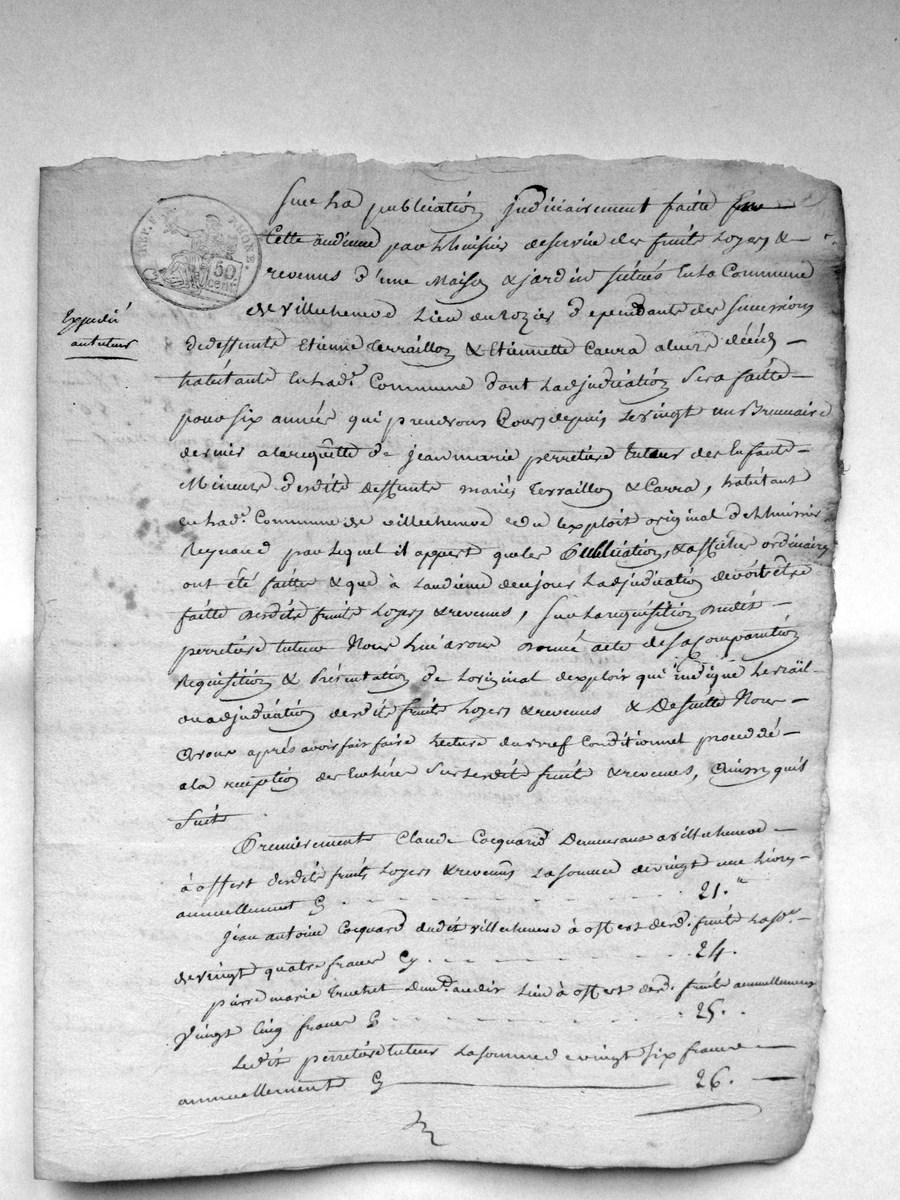 Sur La publication judiciairement faitte En
Cette audience par Lhuissier de service des fruits Loyers &
revenus d'une Maison & jardin situés En La Commune
de villechenève Lieu du rozier dependants des successions
de deffunts Etienne Terraillon & Etiennette Carra
habitants En Lad.e Commune dont Ladjudication Sera faitte
pour six années qui prendrons Cours depuis Le vingt un Brumaire
dernier a la requette de jean marie perretière tuteur des Enfants
Mineurs desdits deffunts mariés Terraillon & Carra, habitant
en Lad.e Commune de villechenève vu Lexploit original de Lhuissier
Reynaud par Lequel il appert que les Publications & affiches ordinaires
ont été faittes & que à Laudience de ce jour Ladjudication devoit etre
faitte desdits fruits Loyers & revenus, sur La requisition dudit
perretière tuteur Nous Lui avons donné acte de sa Comparution
Requisition & Présentation de Loriginal dexploit qui indique Le bail
ou adjudication desdits fruits Loyers & revenus & De suitte Nous
Avons après avoir fait faire Lecture du bref Conditionnel procedé
a la reception des Enchères sur Lesdits fruits & revenus, Ainsy quil
suit
Premièrement Claude Cocquard Demeurant a villechenève
à offert desdits fruits Loyers & revenus La somme de vingt une Livres
annuellement Cy 21."
Jean antoine Cocquard dudit villechenève à offert desd. fruits La so.e
de vingt quatre francs Cy 24.
pierre marie Truchet dem.t audit Lieu à offert desd. fruits annuellement
vingt Cinq francs Cy 25.
Ledit perretière tuteur La somme de vingt six francs
annuellement Cy 26.
Expedié
au tuteur
REP. FRA.
RHONE.
50
cent.